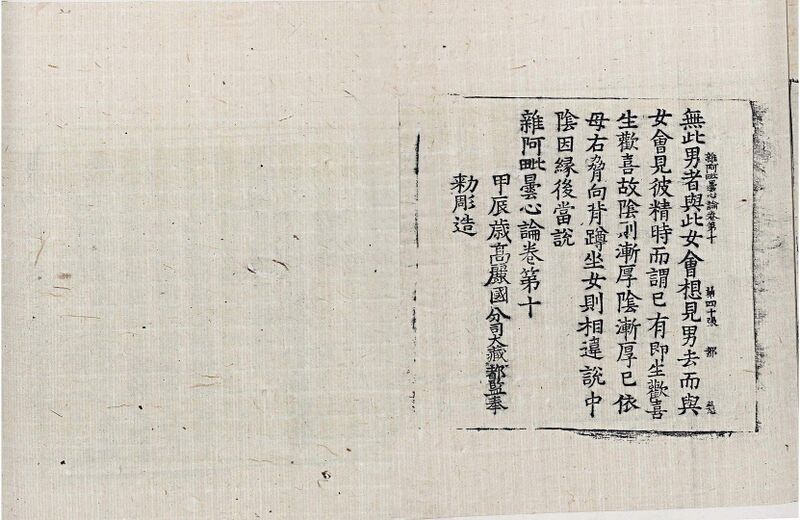 雜阿毗曇心論卷第十 第四十張 都
無此男者與此女會想見男去而與
女會見彼精時而謂已有即生歡喜
生歡喜故陰則漸厚陰漸厚已依
母右脅向背蹲坐女則相違說中
陰因緣後當說
雜阿毗曇心論卷第十
甲辰歳高麗國分司大藏都監奉
勅彫造